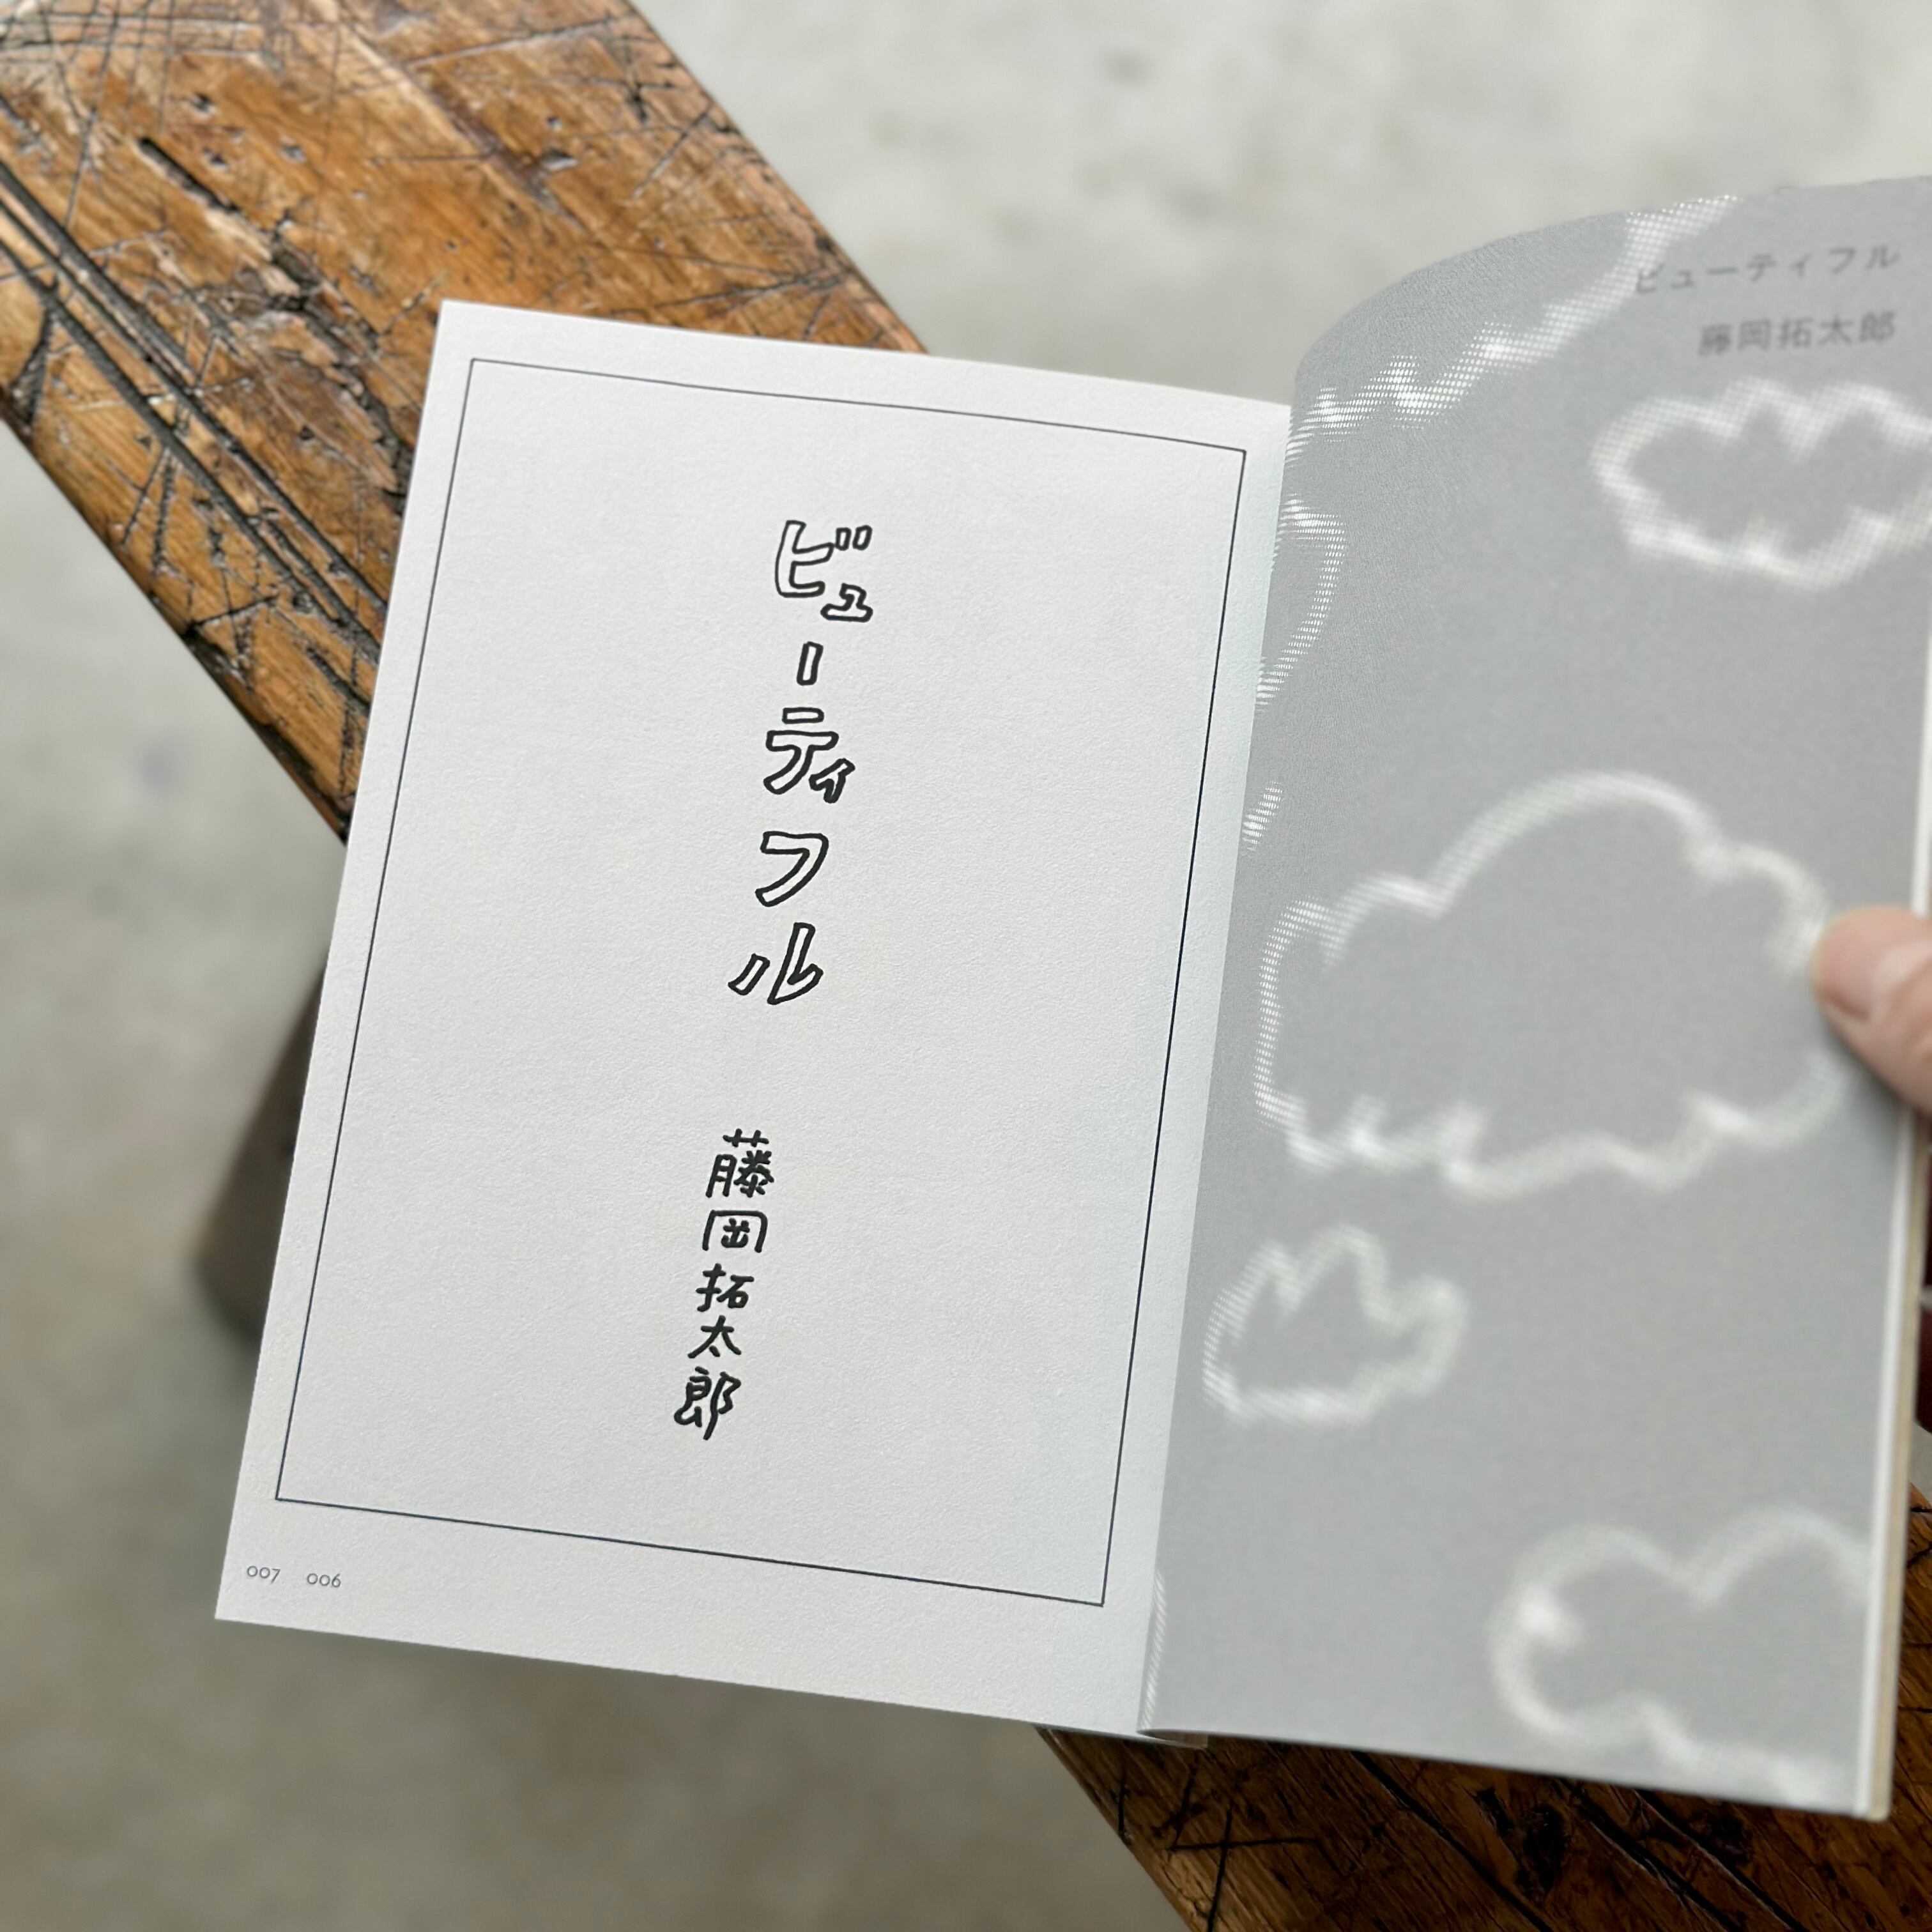 ビューティフル
藤岡拓太郎
ビューティフル
藤岡拓太郎
007 006